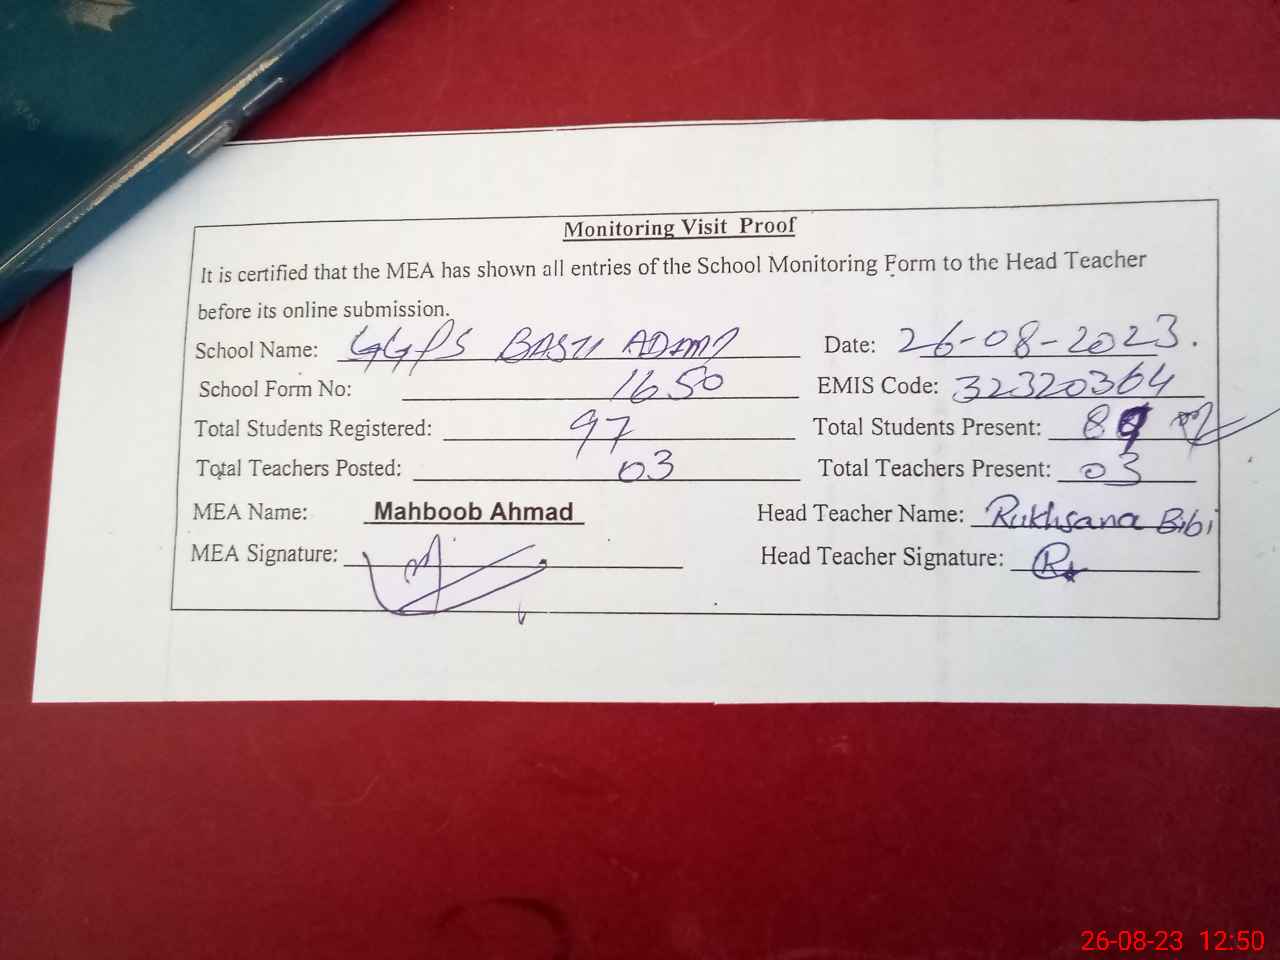 Monitoring Visit Proof
It is certified that the MEA has shown all entries of the School Monitoring Form to the Head Teacher
before its online submission.
School Name: GGPS BASTI ADAMI Date: 26-08-2023.
School Form No: 1650 EMIS Code: 32320364
Total Students Registered: 97 Total Students Present: 89
Total Teachers Posted: 03 Total Teachers Present: 03
MEA Name: Mahboob Ahmad Head Teacher Name: Rukhsana Bibi
MEA Signature: Head Teacher Signature:
26-08-23 12:50